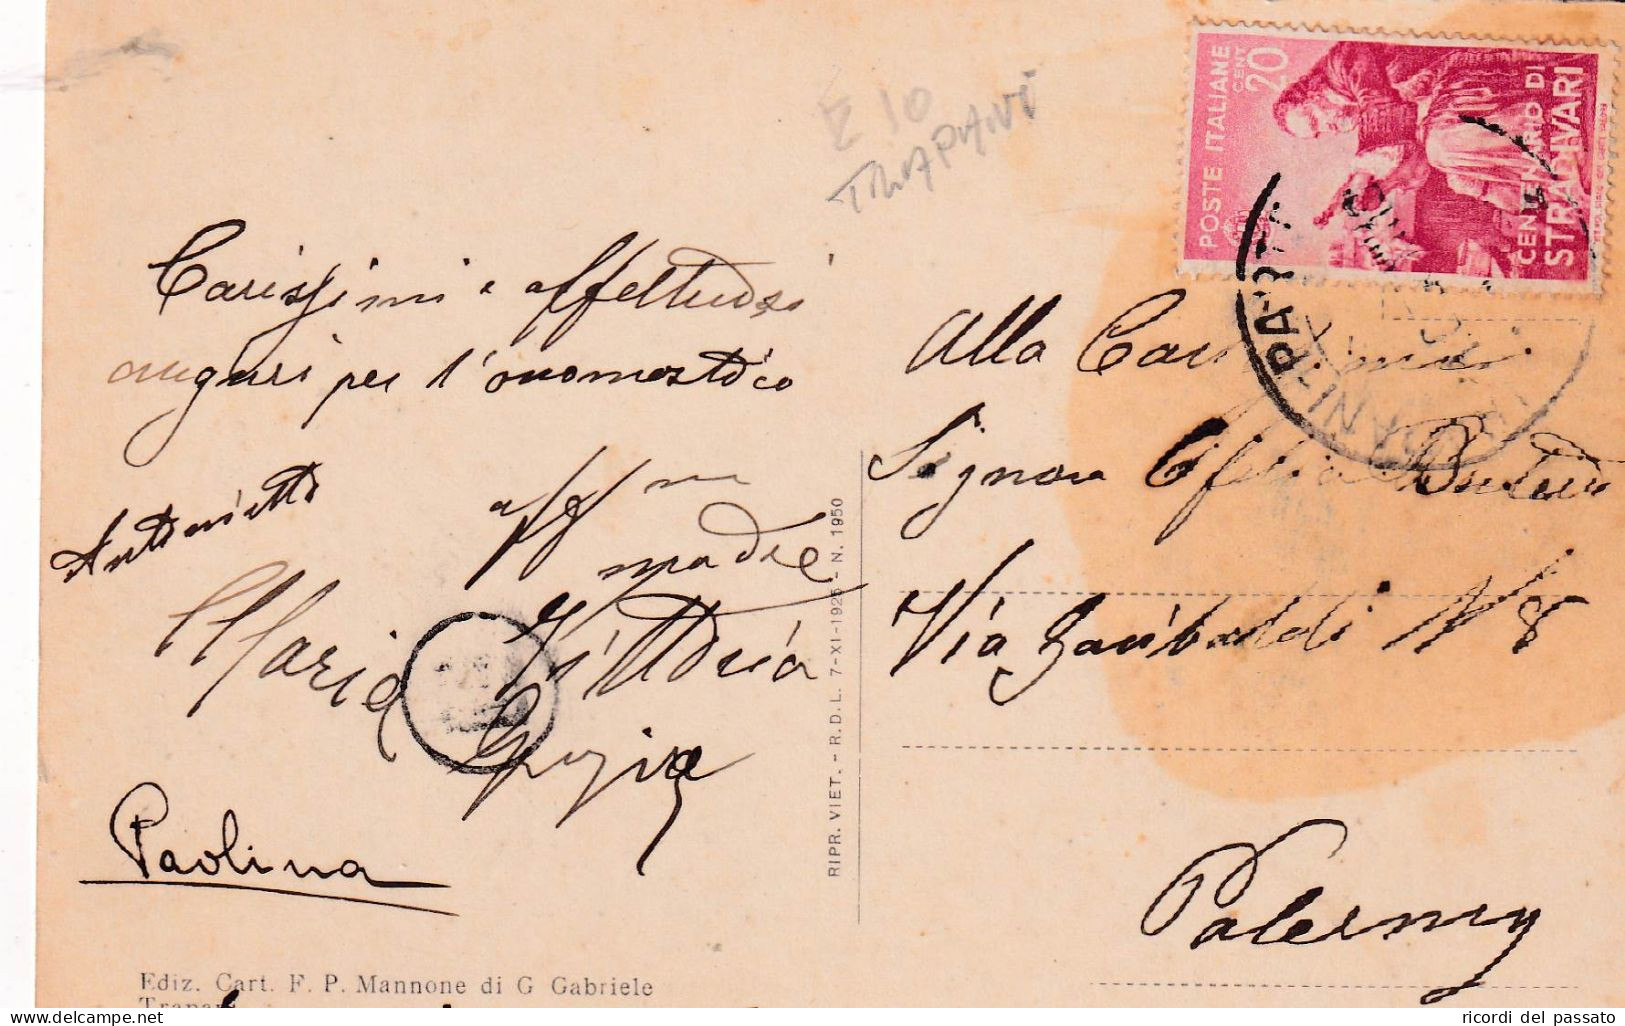 £ 10
TRAPANI
POSTE ITALIANE
CENT 20
CENTENARIO DI
STRADIVARI
Carissimi e affettuosi
auguri per l'onomastico
Antonietta
aff ma
madre
Maria
Vittoria
Grazia
Paolina
Alla Carissima
Signora Ofelia
Via Garibaldi N 8
Palermo
RIPR. VIET. - R. D. L. 7-XI-1925 - N. 1950
Ediz. Cart. F. P. Mannone di G Gabriele
Trapani
ricordi del passato
delcampe.net